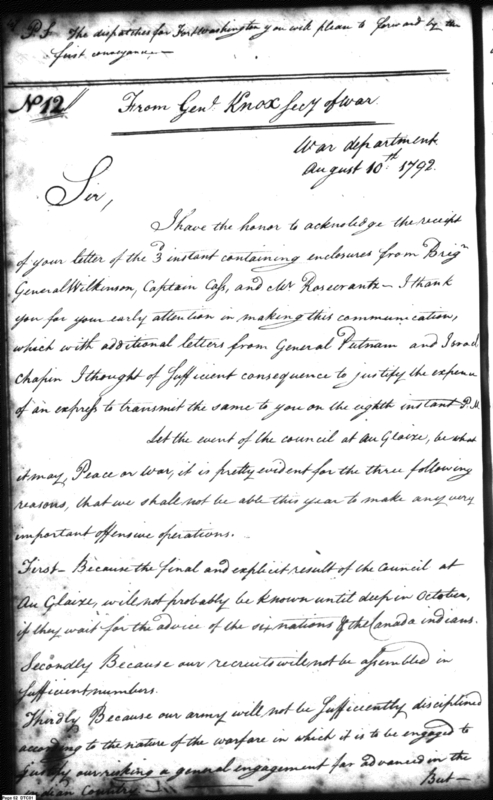 P.S. The dispatches for Fort Washington you will please to forward by the
first conveyance —
No 12
From Genl. Knox Secy of War.
War department
August 10th. 1792.
Sir,
I have the honor to acknoledge the receipt
of your letter of the 3 instant containing enclosures from Brigr
General Wilkinson, Captain Cass, and Mr Rosecrantz — I thank
you for your early attention in making this communication,
which with additional letters from General Putnam and Israel
Chapin I thought of Sufficient consequence to justify the expence
of an express to transmit the same to you on the eighth instant P.M.
Let the event of the council at Au Glaize, be what
it may, Peace or War, it is pretty evident for the three following
reasons, that we shall not be able this year to make any very
important offensive operations. —
First — Because the final and explicit result of the Council at
Au Glaize, will not probably be known until deep in October,
if they wait for the advice of the six nations & the Canada indians.
Secondly Because our recruits will not be assembled in
Sufficient numbers.
Thirdly Because our army will not be Sufficiently disciplined
according to the nature of the warfare in which it is to be engaged to
justify our risking a general engagement far advanced in the
indian Country —
But —
Page 52 DTC01